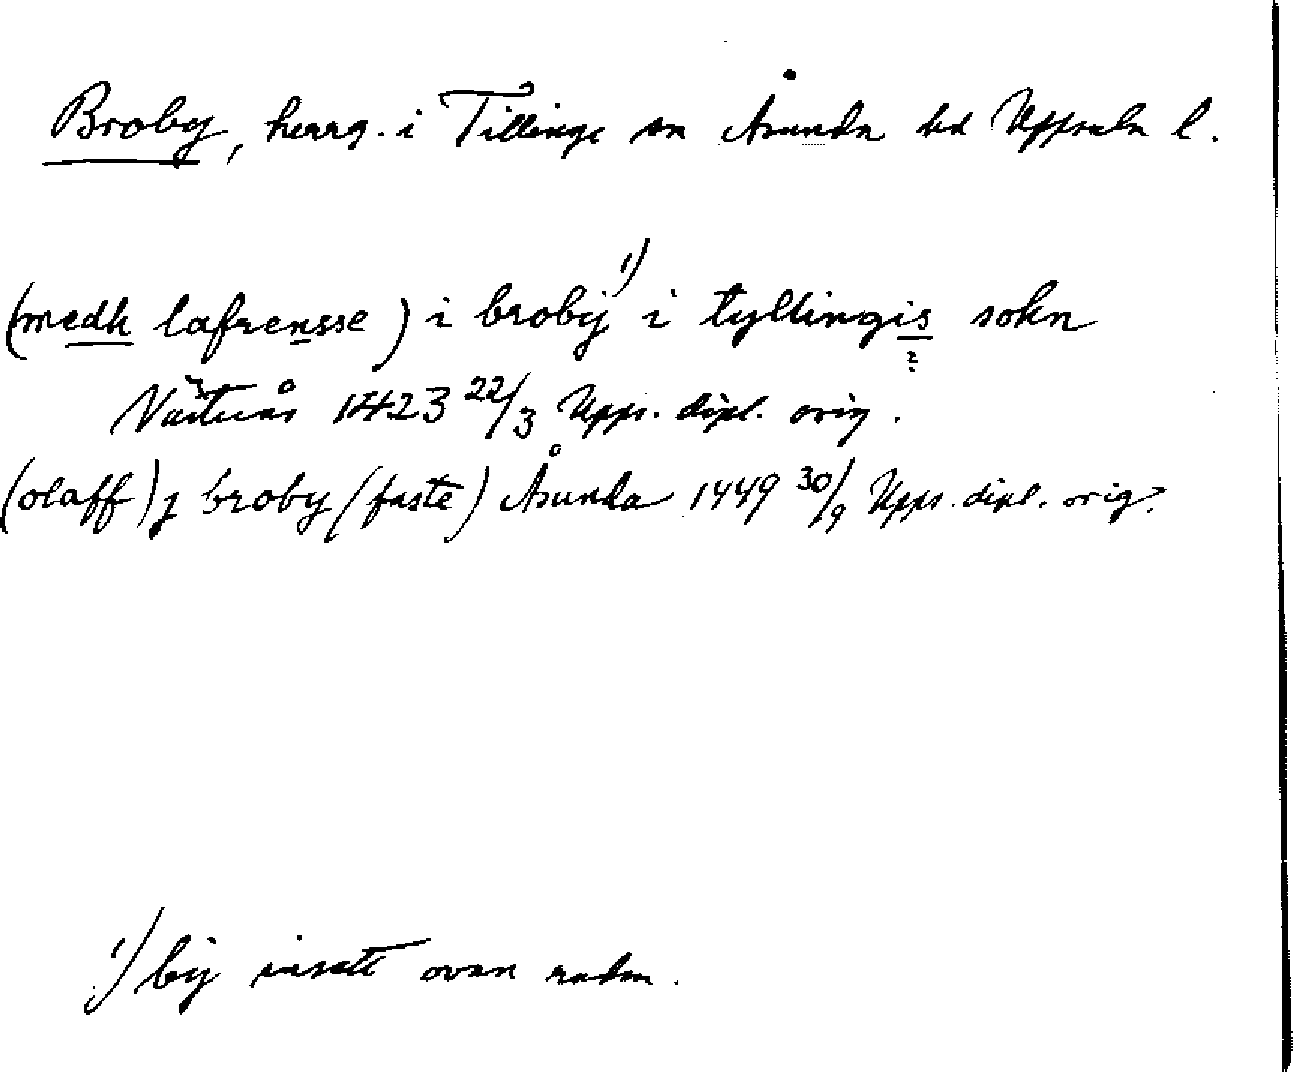 Broby, herrg. i Tillinge sn Åsunda hd Uppsala l.
(medh lafrensse) i brobij 1) i tyllingis sokn
?
Västerås 1423 22/3 Upps. dipl. orig.
(olaff) j broby (faste) Åsunda 1449 30/9 Upps. dipl. orig.
1) bij insatt ovan raden.